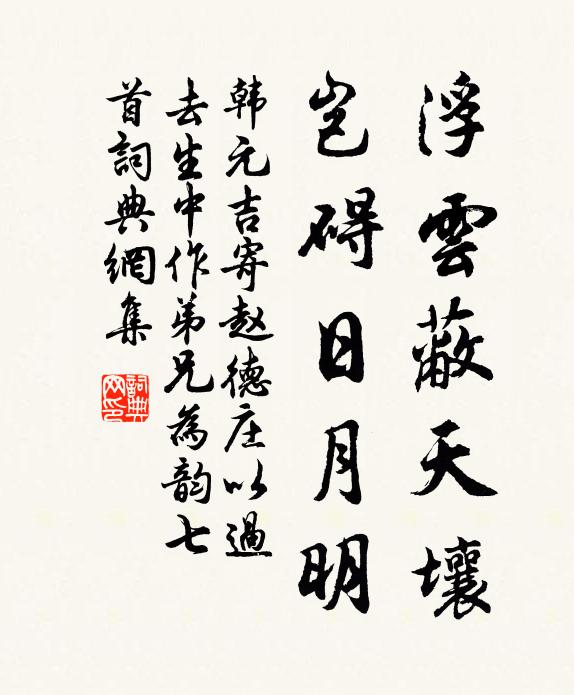 浮雲蔽天壤
岂碍日月明
韩元吉寄赵德庄以過
去生中作弟兄為韵七
首詞典網集
詞典
网印